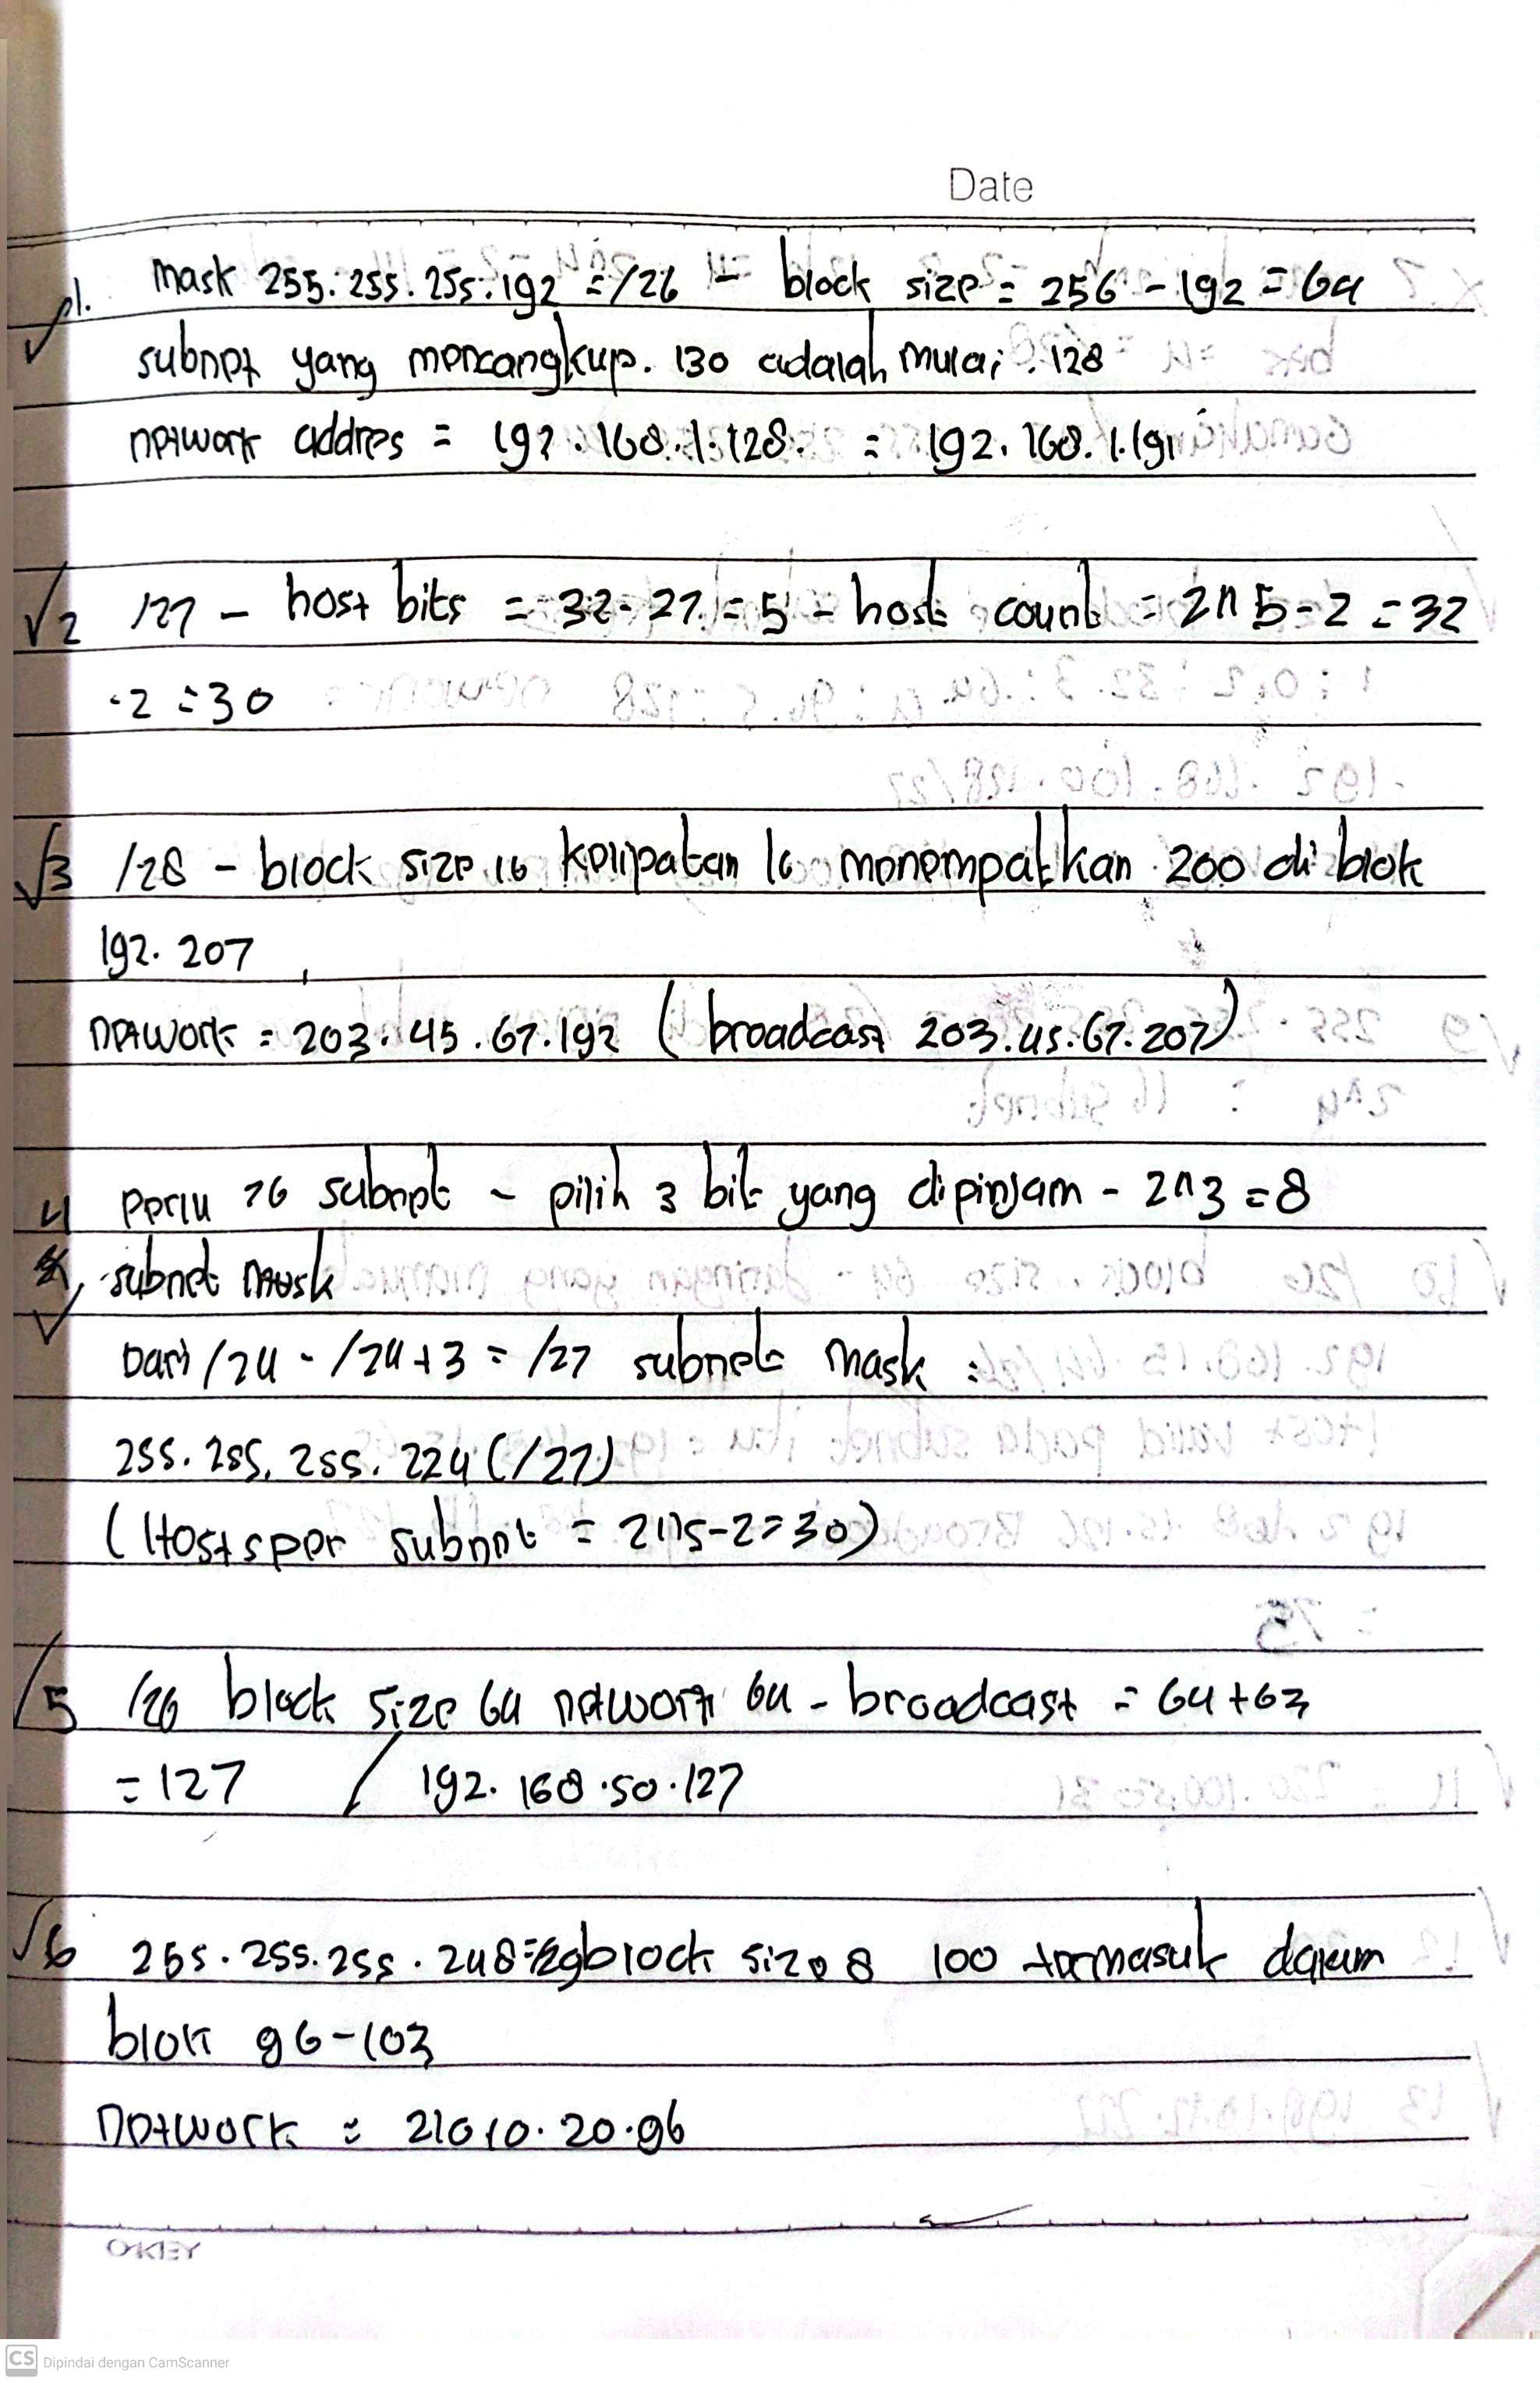 Date
1. Mask 255.255.255.192 = /26 - block size = 256 - 192 = 64
subnet yang mencangkup. 130 adalah mulai . 128
network addres = 192.168.1.128. = 192.168.1.191
2 /27 - host bits = 32-27 = 5 - host count = 2^5-2 = 32
-2 = 30
3 /28 - block size 16 kelipatan 16 menempatkan 200 di blok
192. 207
network = 203.45.67.192 ( broadcast 203.45.67.207)
4 perlu 26 subnet - pilih 3 bit yang dipinjam - 2^3 = 8
subnet mask
Dari /24 - /24+3 = /27 subnet mask :
255.255.255.224 (/27)
(Hosts per subnet = 2^5-2=30)
5 /26 block size 64 network 64 - broadcast = 64+63
= 127 / 192.168.50.127
6 255.255.255.248=/29 block size 8 100 termasuk dalam
blok 96-103
network = 210 10.20.96
OKEY
CS Dipindai dengan CamScanner